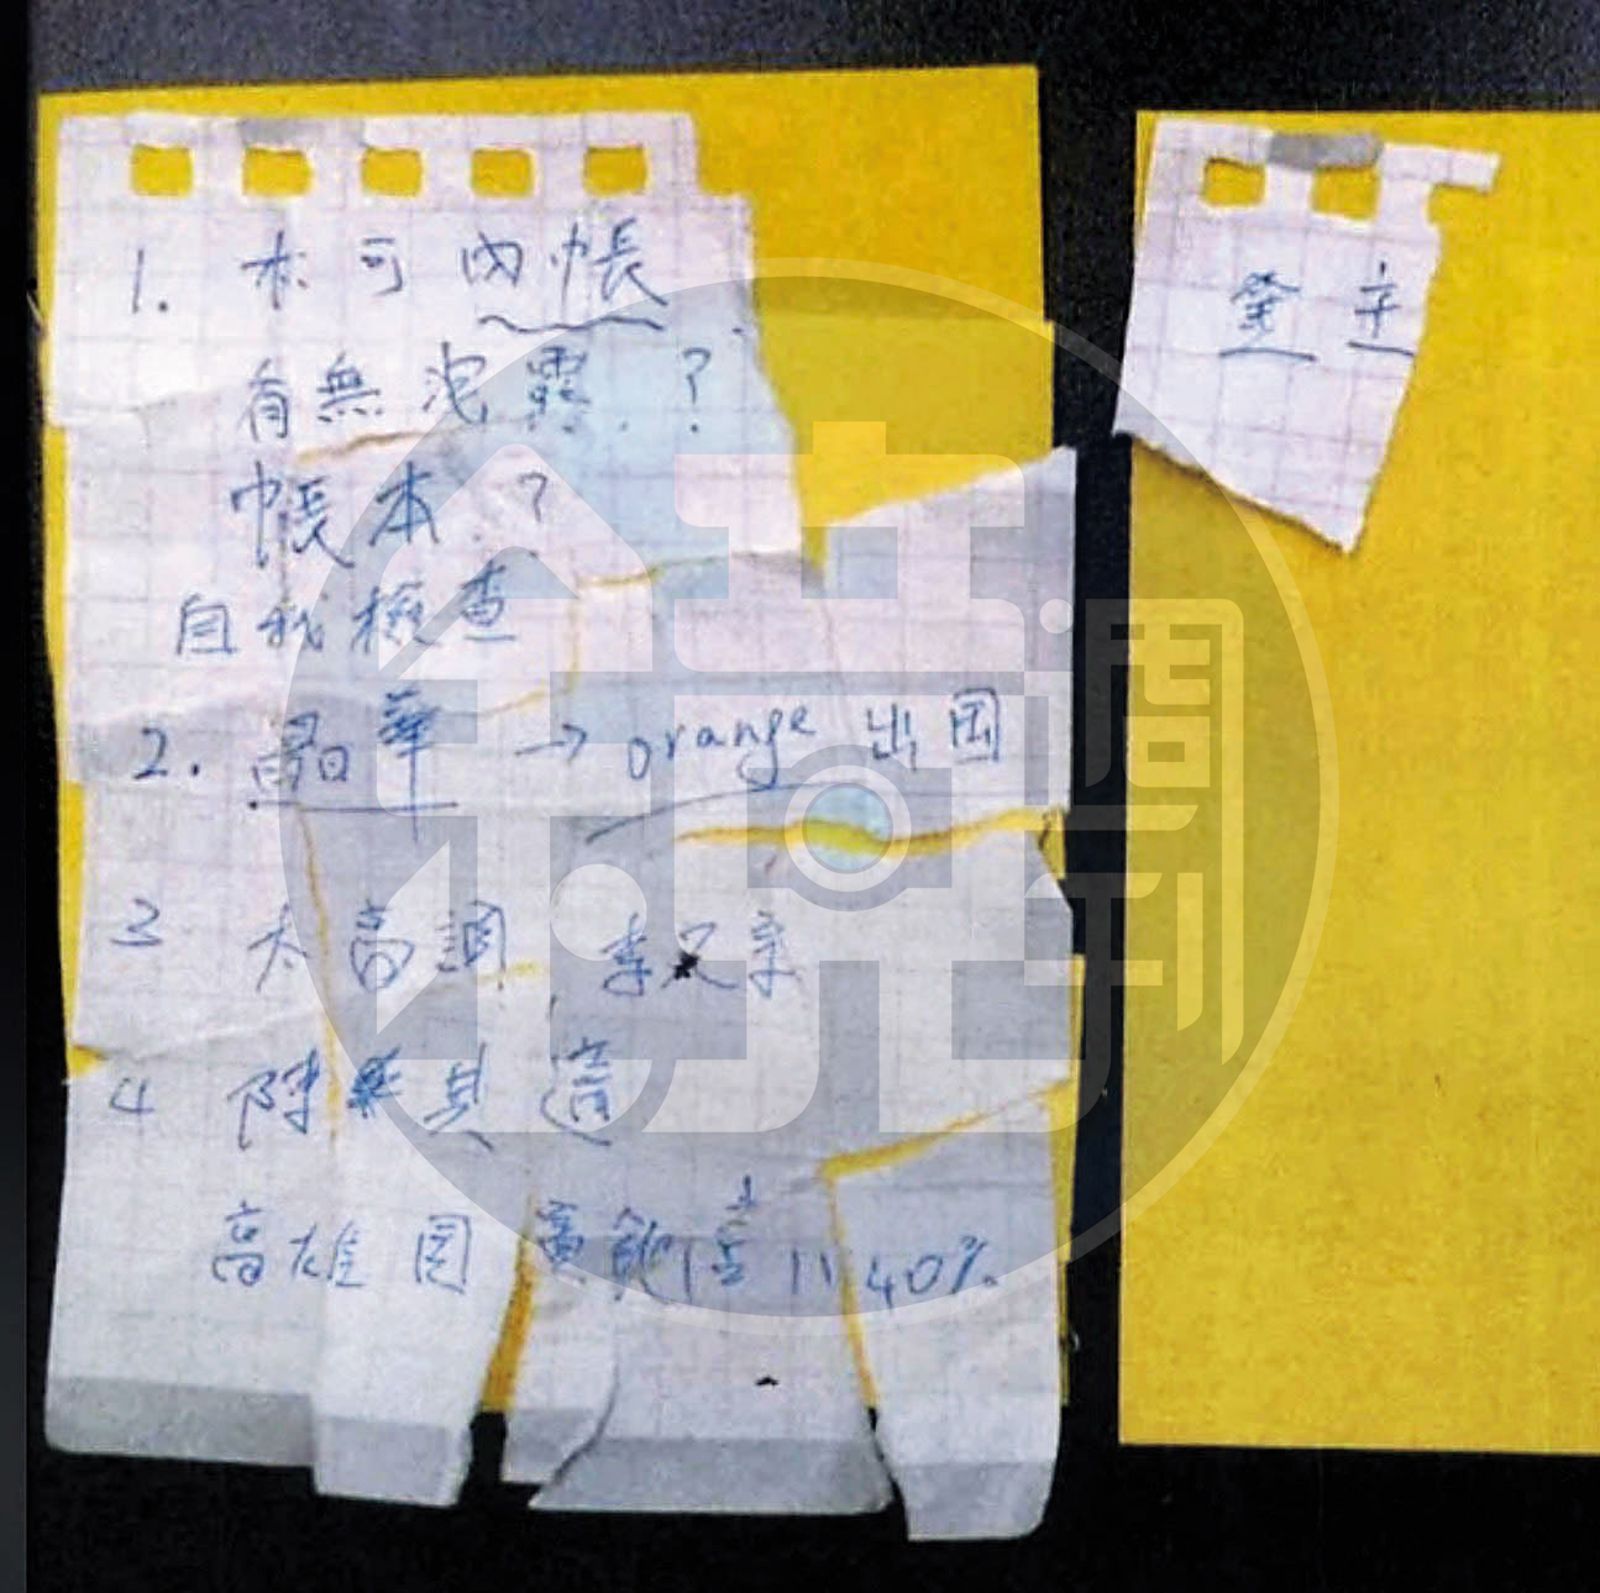 1. 木可內帳
有無洩露?
帳本?
自我檢查
2. 晶華 → orange 出国
3 太高調, 李文宗
4 陳其邁
高雄 40%
鏡週刊